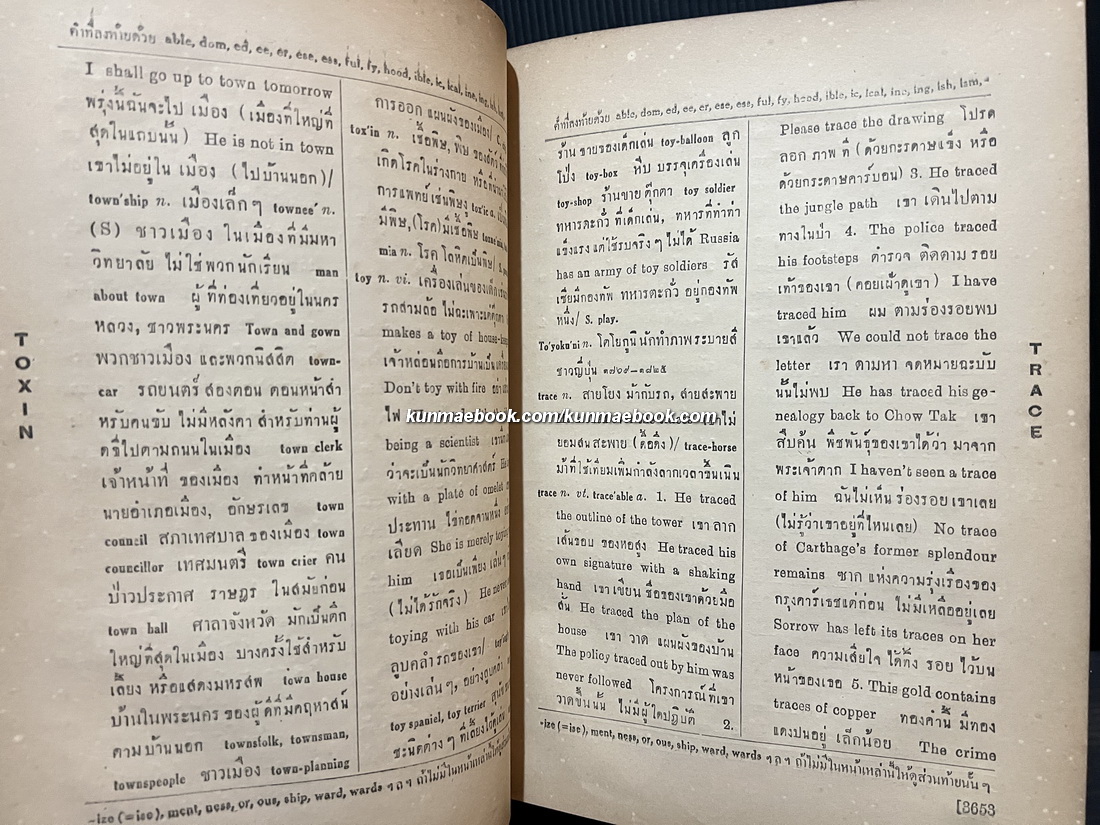 คำที่ลงท้ายด้วย able, dom, ed, ee, er, ese, ess, ful, fy, hood, ible, ic, ical, ine, ing, ish,
I shall go up to town tomorrow
พรุ่งนี้ฉันจะไป เมือง (เมืองที่ใหญ่ที่
สุดในแถบนั้น) He is not in town
เขาไม่อยู่ใน เมือง (ไปบ้านนอก)/
town'ship n. เมืองเล็กๆ townee' n.
(S) ชาวเมือง ในเมืองที่มีมหา
วิทยาลัย ไม่ใช่พวกนักเรียน man
about town ผู้ ที่ท่องเที่ยวอยู่ในนคร
หลวง, ชาวพระนคร Town and gown
พวกชาวเมือง และพวกนิสสิต town-
car รถยนตร์ สองตอน ตอนหน้าสำ
หรับคนขับ ไม่มีหลังคา สำหรับท่านผู้
ดีขี่ไปตามถนนในเมือง town clerk
เจ้าหน้าที่ ของเมือง ทำหน้าที่คล้าย
นายอำเภอเมือง, อักษรเลข town
council สภาเทศบาล ของเมือง town
councillor เทศมนตรี town crier คน
ป่าวประกาศ ราษฎร ในสมัยก่อน
town hall ศาลาจังหวัด มักเป็นตึก
ใหญ่ที่สุดในเมือง บางครั้งใช้สำหรับ
เลี้ยง หรือแสดงมหรสพ town house
บ้านในพระนคร ของผู้ดีที่มีคฤหาสน์
ตามบ้านนอก townsfolk, townsman,
townspeople ชาวเมือง town-planning
การออก แผนผังของเมือง/
tox'in n. เชื้อพิษ, พิษ ของสัตว์
เกิดโรคในร่างกาย
การแพทย์ เช่นพิษงู tox'ic a.
มีพิษ, (โรค) มีเชื้อพิษ
mia n. โรค โลหิตเป็นพิษ/
toy n. vi. เครื่องเล่นของเด็ก
รถสามล้อ ไม่ฉะเพาะแต่ตุ๊กตา
makes a toy of house-
เจ้าหล่อนถือการบ้านเป็น
Don't toy with fire
ไฟ
being a scientist
ว่าจะเป็นนักวิทยาศาสตร์
with a plate of omelet
ประทาน ไข่ทอดจานหนึ่ง
เลียด She is merely toying
him เธอเป็นเพียง เล่นๆ
(ไม่ได้รักจริง) He never
toying with his car
ลูบคลำ รถของเขา/
อย่างเล่นๆ,
toy spaniel, toy terrier
ชะนิดต่างๆ ที่เลี้ยงไว้
-ize (=ise), ment, ness, or, ous, ship, ward, wards ฯลฯ ถ้าไม่มีในหน้าเหล่านี้
TOXIN
คำที่ลงท้ายด้วย able, dom, ed, ee, er, ese, ess, ful, fy, hood, ible, ic, ical, ine, ing, ish, ism,
ร้าน ขายของเด็กเล่น toy-balloon ลูก
โป่ง toy-box หีบ บรรจุเครื่องเล่น
toy-shop ร้านขาย ตุ๊กตา toy soldier
ทหารตะกั่ว ที่เด็กเล่น, ทหารที่ทำท่า
แข็งแรง แต่ใช้รบจริงๆ ไม่ได้ Russia
has an army of toy soldiers รัส
เซียมีกองทัพ ทหารตะกั่ว อยู่กองทัพ
หนึ่ง/ S. play.
To'yoku'ni n. โตโยกูนิ นักทำภาพระบายสี
ชาวญี่ปุ่น ๑๗๖๙-๑๘๒๕
trace n. สายโยง ม้ากับรถ, ล่ามสะพาย
ยอมสนสะพาย (ดื้อดึง)/ trace-horse
ม้าที่ใช้เทียมเพิ่มกำลังลากเวลาขึ้นเนิน
trace n. vt. trace'able a. 1. He traced
the outline of the tower เขา ลาก
เส้นรอบ ของหอสูง He traced his
own signature with a shaking
hand เขา เขียน ชื่อของเขาด้วยมือ
สั่น He traced the plan of the
house เขา วาด แผนผังของบ้าน
The policy traced out by him was
never followed โครงการณ์ที่เขา
วาดขึ้นนั้น ไม่มีผู้ใดปฏิบัติ 2.
Please trace the drawing โปรด
ลอก ภาพ ที (ด้วยกระดาษแข็ง หรือ
ด้วยกระดาษคาร์บอน) 3. He traced
the jungle path เขา เดินไปตาม
ทางในป่า 4. The police traced
his footsteps ตำรวจ ติดตาม รอย
เท้าของเขา (คอยเฝ้าดูเขา) I have
traced him ผม ตามร่องรอยพบ
เขาแล้ว We could not trace the
letter เรา ตามหา จดหมายฉะบับ
นั้นไม่พบ He has traced his ge-
nealogy back to Chow Tak เขา
สืบค้น พืชพันธุ์ของเขาได้ว่า มาจาก
พระเจ้าตาก I haven't seen a trace
of him ฉันไม่เห็น ร่องรอย เขาเลย
(ไม่รู้ว่าเขาอยู่ที่ไหนเลย) No trace
of Carthage's former splendour
remains ซาก แห่งความรุ่งเรืองของ
กรุงคาร์เธชแต่ก่อน ไม่มีเหลืออยู่เลย
Sorrow has left its traces on her
face ความเสียใจ ได้ทิ้ง รอย ไว้บน
หน้าของเธอ 5. This gold contains
traces of copper ทองคำนี้ มีทอง
แดงปนอยู่ เล็กน้อย The crime
-ize (=ise), ment, ness, or, ous, ship, ward, wards ฯลฯ ถ้าไม่มีในหน้าเหล่านี้ให้ดูส่วนท้ายนั้นๆ
[3653
TRACE
kunmaebook.com/kunmaebook.com